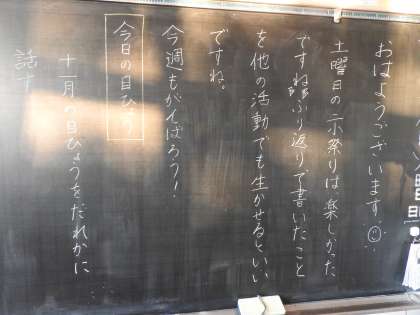 おはようございます☺
土曜日の示祭りは楽しかった
ですね。ふり返りで書いたこと
を他の活動でも生かせるといい
ですね。
今週もがんばろう！
今日の目ひょう
十一月の目ひょうをだれかに
話す
曜
日